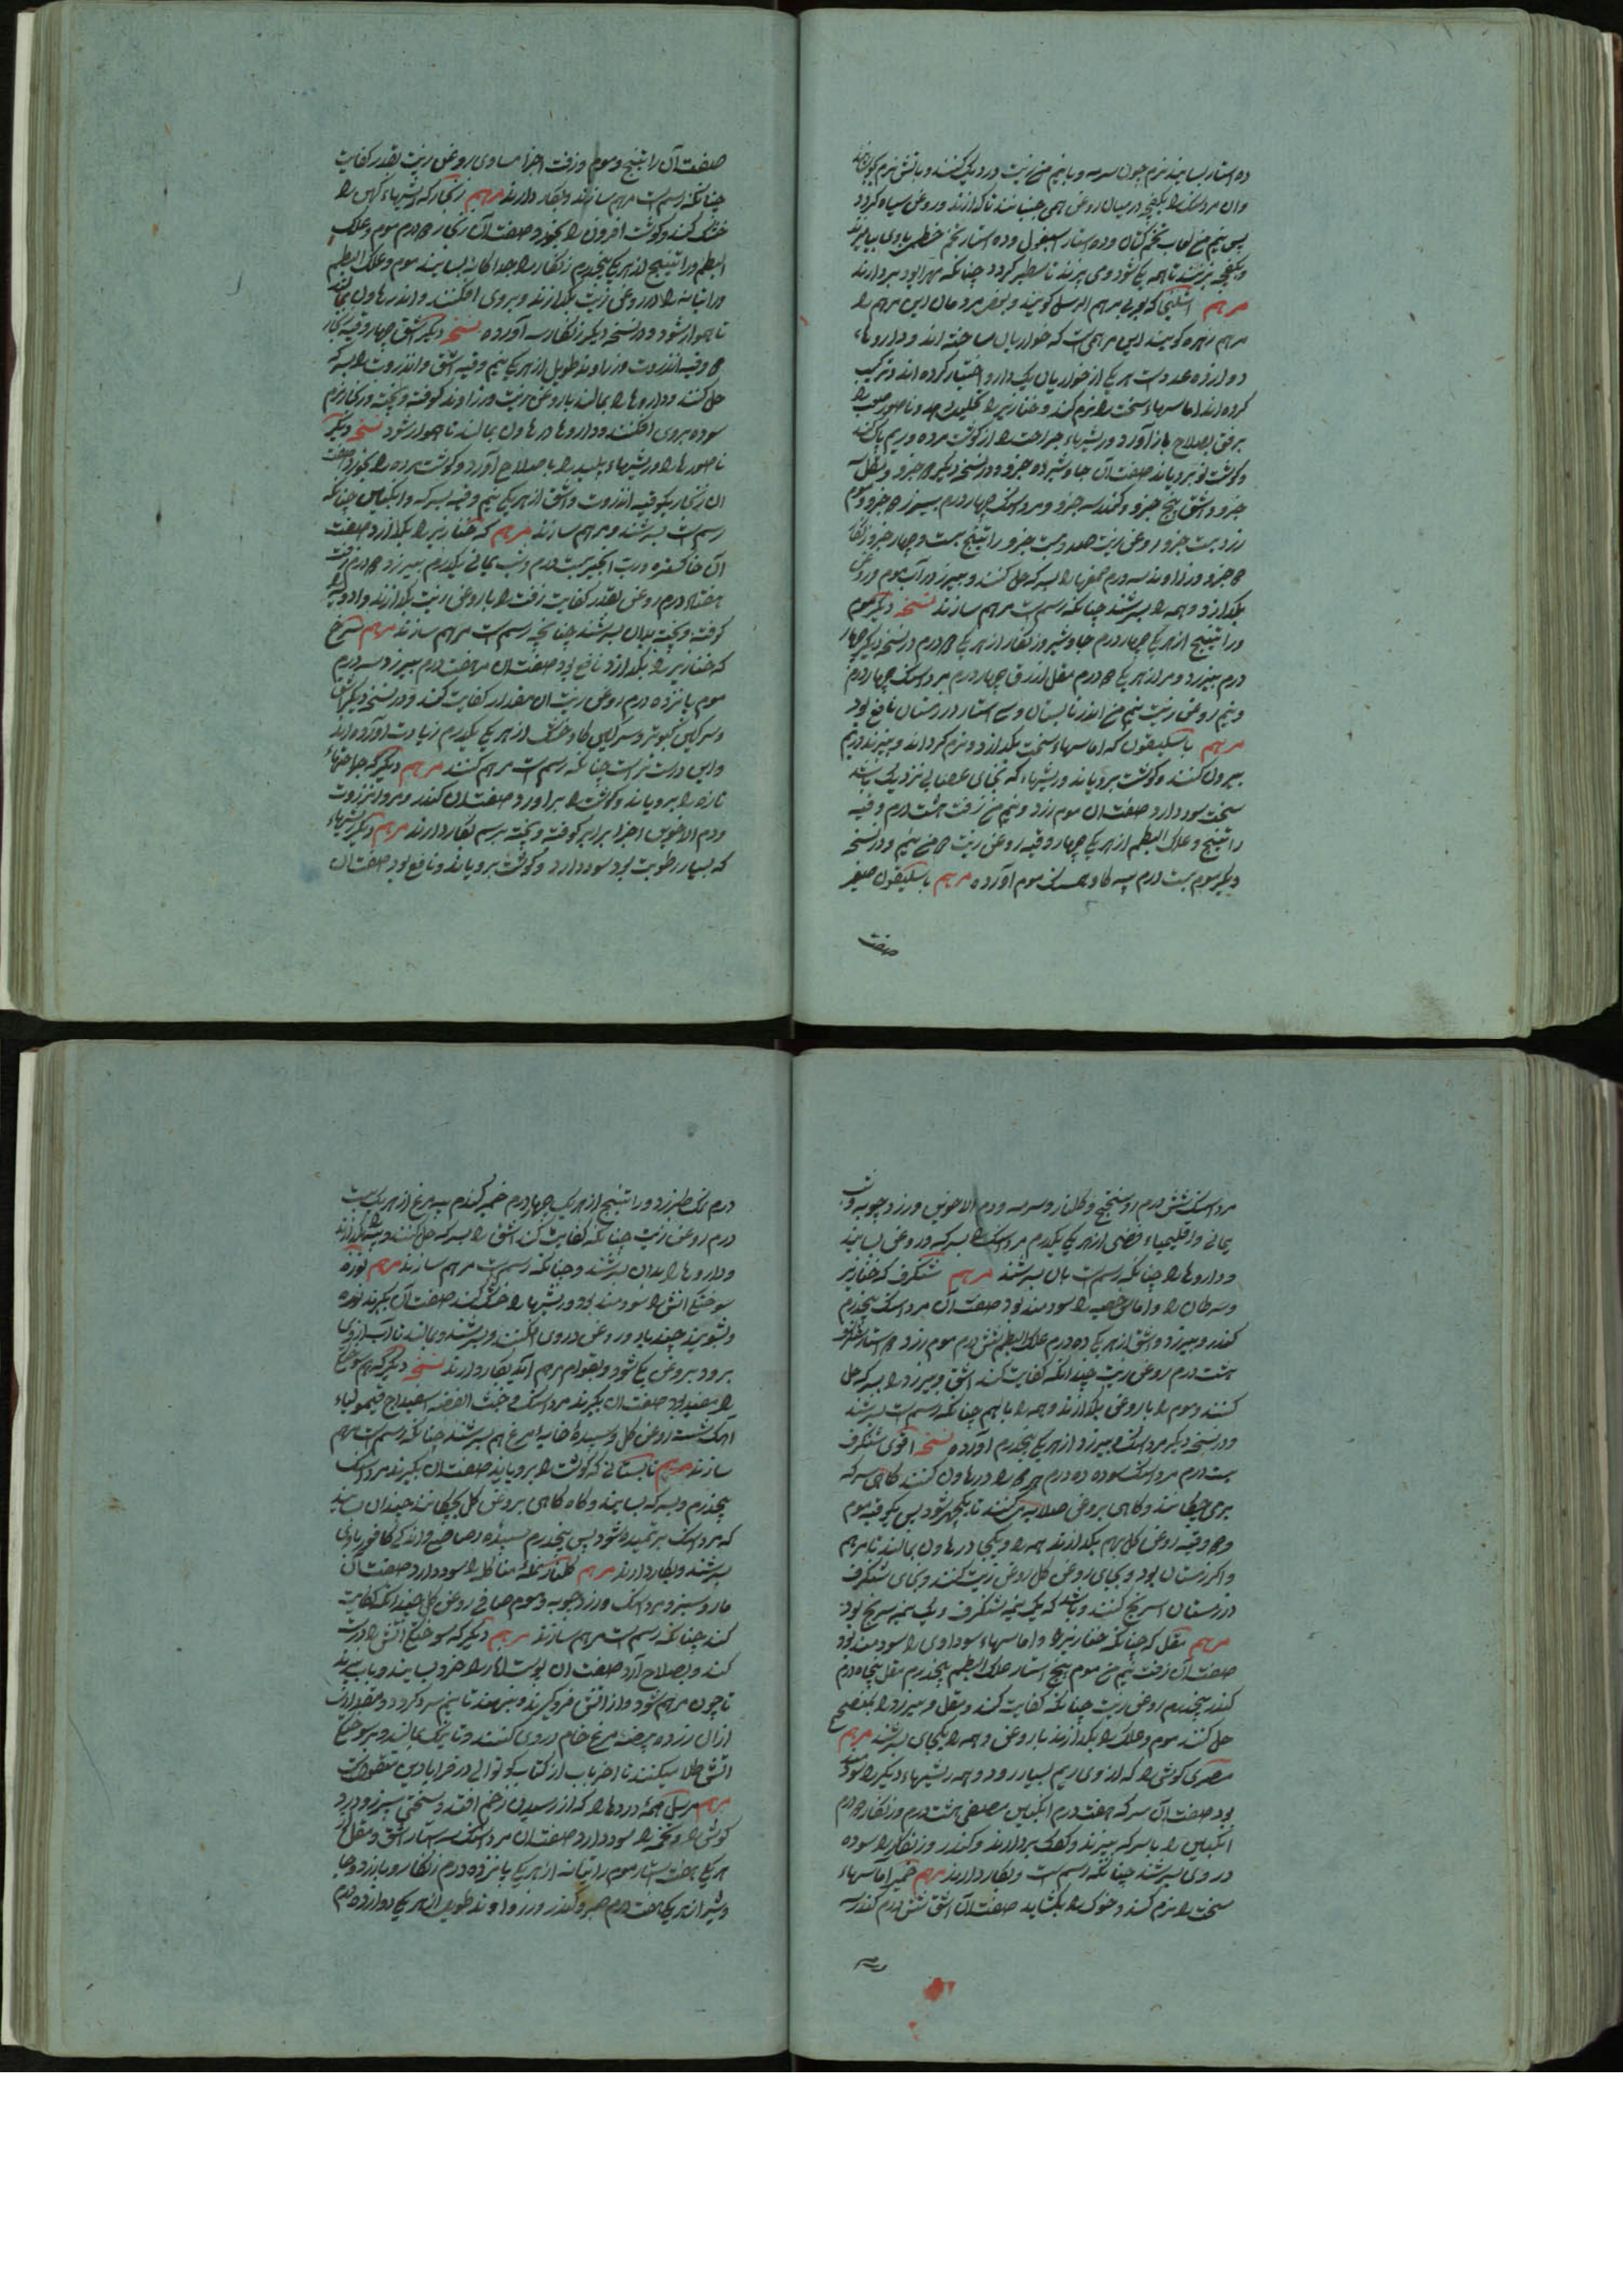 ده استار بسایند نرم چون سرمه و با نیم من زیت در دیک کنند و باتش نرم
وان مرداسنک را بکفچه در میان روغن همی جنبانند تا کدازند و روغن سیاه کردد
پس نیم من لعاب تخم کتان و ده استار اسبغول و ده استار تخم خطمی باوی بیامیزند
و بکفچه بزنند تا همه یکی شود و می پزند تا سطبر کردد چنانکه مهرا بود بردارند
مرهم که بوی مرهم الرسل کویند و بعضی مردمان این مرهم را
مرهم زهره کویند این مرهمی است که حواریان ساخته اند و داروهاء
دوازده عددست هر یکی از حواریان یک دارو اختیار کرده اند و ترکیب
کرده اند اماسهاء سخت را نرم کند و خنازیر را تحلیل دهد و ناصور صعب را
برفق بصلاح باز آورد و ریشهاء جراحت را از کوشت مرده و ریم پاک کند
و کوشت نو برویاند صفت آن جاوشیر ده جزو و در نسخه دیکر جزو و مقل سه
جزو و اشق پنج جزو و کندر سه جزو و مرداسنک چهار درم بیرزد جزو و موم
زرد بیست جزو روغن زیت صد و بیست جزو راتینج بیست و چهار جزو زنکار
جزو و زراوند سه درم صمغها را بسرکه حل کنند و بیرزد در آب موم و روغن
بکدازد و همه را بسرشند چنانکه رسم است مرهم سازند نسخه دیکر موم
و راتینج از هر یکی چهار درم جاوشیر و زنکار از هر یکی درم در نسخه دیکر چهار
درم بیرزد و مر از هر یکی درم مقل ازرق چهار درم مرداسنک چهار درم
و نیم روغن زیت نیم من اندر تابستان و سی استار در زمستان نافع بود
مرهم باسلیقون که اماسهاء سخت بکدازد و نرم کرداند و بپزند و ریم
بیرون کند و کوشت برویاند و ریشهاء که بجای عصبانی نزدیک باشد
سخت سود دارد صفت ان موم زرد و نیم من زفت هشت درم وقیه
راتینج و علک البطم از هر یکی چهار وقیه روغن زیت من نیم و در نسخه
دیکر موم بیست درم پیه کاو همسنک موم آورده مرهم باسلیقون صغیر
صفت
صفت آن راتینج و موم و زفت اجزا مساوی روغن زیت بقدر کفایت
چنانکه رسم است مرهم سازند و بکار دارند مرهم زنکار که ریشهاء کهن را
خشک کند و کوشت افزون را بخورد صفت آن زنکار درم موم و علک
البطم و راتینج از هر یکی پنجدرم زنکار را جداکانه بسایند موم و علک البطم
و راتیانه را در روغن زیت بکدازند و بروی افکنند و اندر هاون بمالند
تا هموار شود و در نسخه دیکر زنکار سه آورده نسخه دیکر اشق چهار وقیه زنکار
وقیه انزروت و زراوند طویل از هر یکی نیم وقیه اشق و انزروت را بسرکه
حل کنند و داروها را بمالند با روغن زیت و زراوند کوفته و بیخته و زنکار نرم
سوده بروی افکنند و داروها در هاون بمالند تا هموار شود نسخه دیکر
ناصورها را و ریشهاء پلید را باصلاح آورد و کوشت مرده را بخورد صفت
ان زنکار یکوقیه انزروت و اشق از هر یکی نیم وقیه بسرکه و انکبین چنانکه
رسم است بسرشند و مرهم سازند مرهم که خنازیر را بکدازد صفت
آن خاکستر درخت انجیر بیست درم و شب یمانی یکدرم بیرزد درم زفت
هفتاد درم روغن بقدر کفایت زفت را با روغن زیت بکدازند و ادویه
کوفته و بیخته بدان بسرشند چنانچه رسم است مرهم سازند مرهم سرخ
که خنازیر را بکدازد نافع بود صفت ان هفت درم بیرزد سه درم
موم پانزده درم روغن زیت ان مقدار کفایت کند و در نسخه دیکر اشق
و سرکین کبوتر و سرکین کاو خشک از هر یکی یکدرم زیادت آورده اند
و این درست تر است چنانکه رسم است مرهم کنند مرهم دیکر که جراحتهاء
تازه را برویاند و کوشت را براورد صفت ان کندر و مر و انزروت
و دم الاخوین اجزا برابر کوفته و بیخته برسم بکار دارند مرهم دیکر ریشهاء
که بسیار رطوبت بود سود دارد و کوشت برویاند و نافع بود صفت ان
مرداسنک شش درم اسفنج و کلنار و سرمه و دم الاخوین و زردچوبه و شب
یمانی و اقلیمیاء فضی از هر یکی یکدرم مرداسنک را بسرکه و روغن بسایند
و داروها را چنانکه رسم است بان بسرشند مرهم شنکرف که خنازیر
و سرطان را و اماس خصیه را سودمند بود صفت آن مرداسنک پنجدرم
کندر و بیرزد و اشق از هر یکی ده درم علک البطم شش درم موم زرد استار شنکرف
هشت درم روغن زیت چندانکه کفایت کند اشق و بیرزد را بسرکه حل
کنند و موم را با روغن بکدازند و همه را باهم چنانکه رسم است بسرشند
و در نسخه دیکر مرداسنک و بیرزد از هر یکی پنجدرم آورده نسخه اقوی شنکرف
بیست درم مرداسنک سوده ده درم هر دو را در هاون کنند کاهی سرکه
بر می چکانند و کاهی بروغن صلایه میکنند تا یکی شود پس یکوقیه موم
و وقیه روغن کل بهم بکدازند همه را یکجای در هاون بمالند تا مرهم
و اکر زمستان بود و بجای روغن کل روغن زیت کنند و بجای شنکرف
در زمستان اسرنج کنند و باشد که یک نیمه شنکرف و یک نیمه سرنج بود
مرهم مقل که چنانکه خنازیر را و اماسهاء سوداوی را سودمند بود
صفت آن زفت نیم من موم پنج استار علک البطم پنجدرم مقل پنجاه درم
کندر پنجدرم روغن زیت چنانکه کفایت کند و مقل و بیرزد را
حل کنند موم و علک را بکدازند با روغن و همه را یکجای بسرشند مرهم
مصری کوش را که از وی ریم بسیار رود و همه ریشهاء دیکر را سودمند
بود صفت آن سرکه هفت درم انکبین مصفی هشت درم و زنکار درم
انکبین را با سرکه بپزند و کفک بردارند و کندر و زنکار را سوده
در وی بسرشند چنانکه رسم است و بکار دارند مرهم خمیر آماسهاء
سخت را نرم کند و خوک را بکشاید صفت آن اشق شش درم کندر سه
درم نمک طبرزد و راتینج از هر یک چهار درم خمیر کندم پیه مرغ از هر یک بیست
درم روغن زیت چنانکه کفایت کند اشق را بسرکه حل کنند و پیه را بکدازند
و داروها را بدان بسرشند و چنانکه رسم است مرهم سازند مرهم نوره
سوختکی اتش را سودمند بود و ریشها را خشک کند صفت آن بکیرند نوره
و بشویند چند بار و روغن در وی افکنند و بسرشند و بمالند تا آب از وی
برود و بروغن یکی شود و بقوام مرهم آید بکار دارند نسخه دیکر که هم سوختکی
را مفید بود صفت ان بکیرند مرداسنک و خبث الفضه اسفیداج قیمولیاء
آهک شسته روغن کل و سپیده خایه مرغ بهم بسرشند چنانکه رسم است مرهم
سازند مرهم تابستانی که کوشت را برویاند صفت ان بکیرند مرداسنک
پنجدرم و بسرکه بسایند و کاه کاهی بروغن کل بچکانند چندان بسایند
که مرداسنک بر شود پس پنجدرم سپیده رصاص و اندکی کافور باوی
بسرشند و بکار دارند مرهم کلنار نمله متاکله را سود دارد صفت آن
مازو سبز و مرداسنک و زردچوبه و موم صافی روغن کل چندانکه کفایت
کند چنانکه رسم است مرهم سازند مرهم دیکر که سوختکی اتش را درست
کند و بصلاح آرد صفت ان پوست انار را خرد بسایند و باب بپزند
تا چون مرهم شود و از اتش فرو کیرند و بنهند تا نیم سرد کردد و مقداری
از ان زرده بیضه مرغ خام در وی کنند و تا نیک بمالند و بر سوختکی
اتش طلا میکنند تا اخر باب از کتاب کوتوالی در قرابادین منقولست
مرهم رسل همه دردها را که از رسیدن زخم افتد و سختی سپرز و درد
کوش را و نخمه را سود دارد صفت ان مرداسنک سه استار اشق و مقل از
هر یکی هفت استار موم راتیانه از هر یکی پانزده درم زنکار و بارزد و جا
وشیر از هر یکی هفت درم صبر و کندر و زراوند طویل از هر یکی دوازده درم